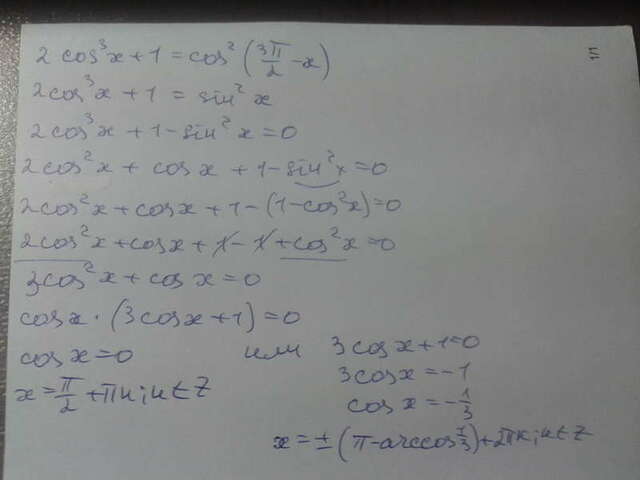 2 cos³x + 1 = cos² (3π/2 - x)
2cos³x + 1 = sin²x
2cos³x + 1 - sin²x = 0
2cos²x + cosx + 1 - sin²x = 0
2cos²x + cosx + 1 - (1 - cos²x) = 0
2cos²x + cosx + 1 - 1 + cos²x = 0
3cos²x + cosx = 0
cosx · (3cosx + 1) = 0
cosx = 0 или 3cosx + 1 = 0
3cosx = -1
x = π/2 + πk; k ∈ Z
cosx = -1/3
x = ± (π - arccos 1/3) + 2πk; k ∈ Z